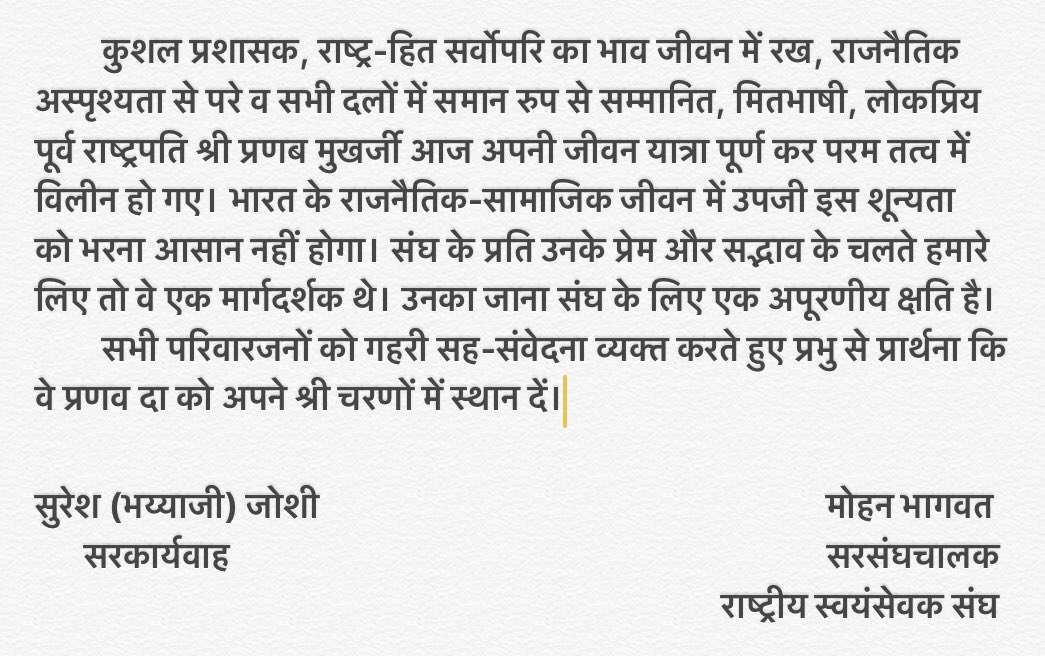 कुशल प्रशासक, राष्ट्र-हित सर्वोपरि का भाव जीवन में रख, राजनैतिक
अस्पृश्यता से परे व सभी दलों में समान रुप से सम्मानित, मितभाषी, लोकप्रिय
पूर्व राष्ट्रपति श्री प्रणब मुखर्जी आज अपनी जीवन यात्रा पूर्ण कर परम तत्व में
विलीन हो गए। भारत के राजनैतिक-सामाजिक जीवन में उपजी इस शून्यता
को भरना आसान नहीं होगा। संघ के प्रति उनके प्रेम और सद्भाव के चलते हमारे
लिए तो वे एक मार्गदर्शक थे। उनका जाना संघ के लिए एक अपूरणीय क्षति है।
सभी परिवारजनों को गहरी सह-संवेदना व्यक्त करते हुए प्रभु से प्रार्थना कि
वे प्रणव दा को अपने श्री चरणों में स्थान दें।
सुरेश (भय्याजी) जोशी मोहन भागवत
सरकार्यवाह सरसंघचालक
राष्ट्रीय स्वयंसेवक संघ